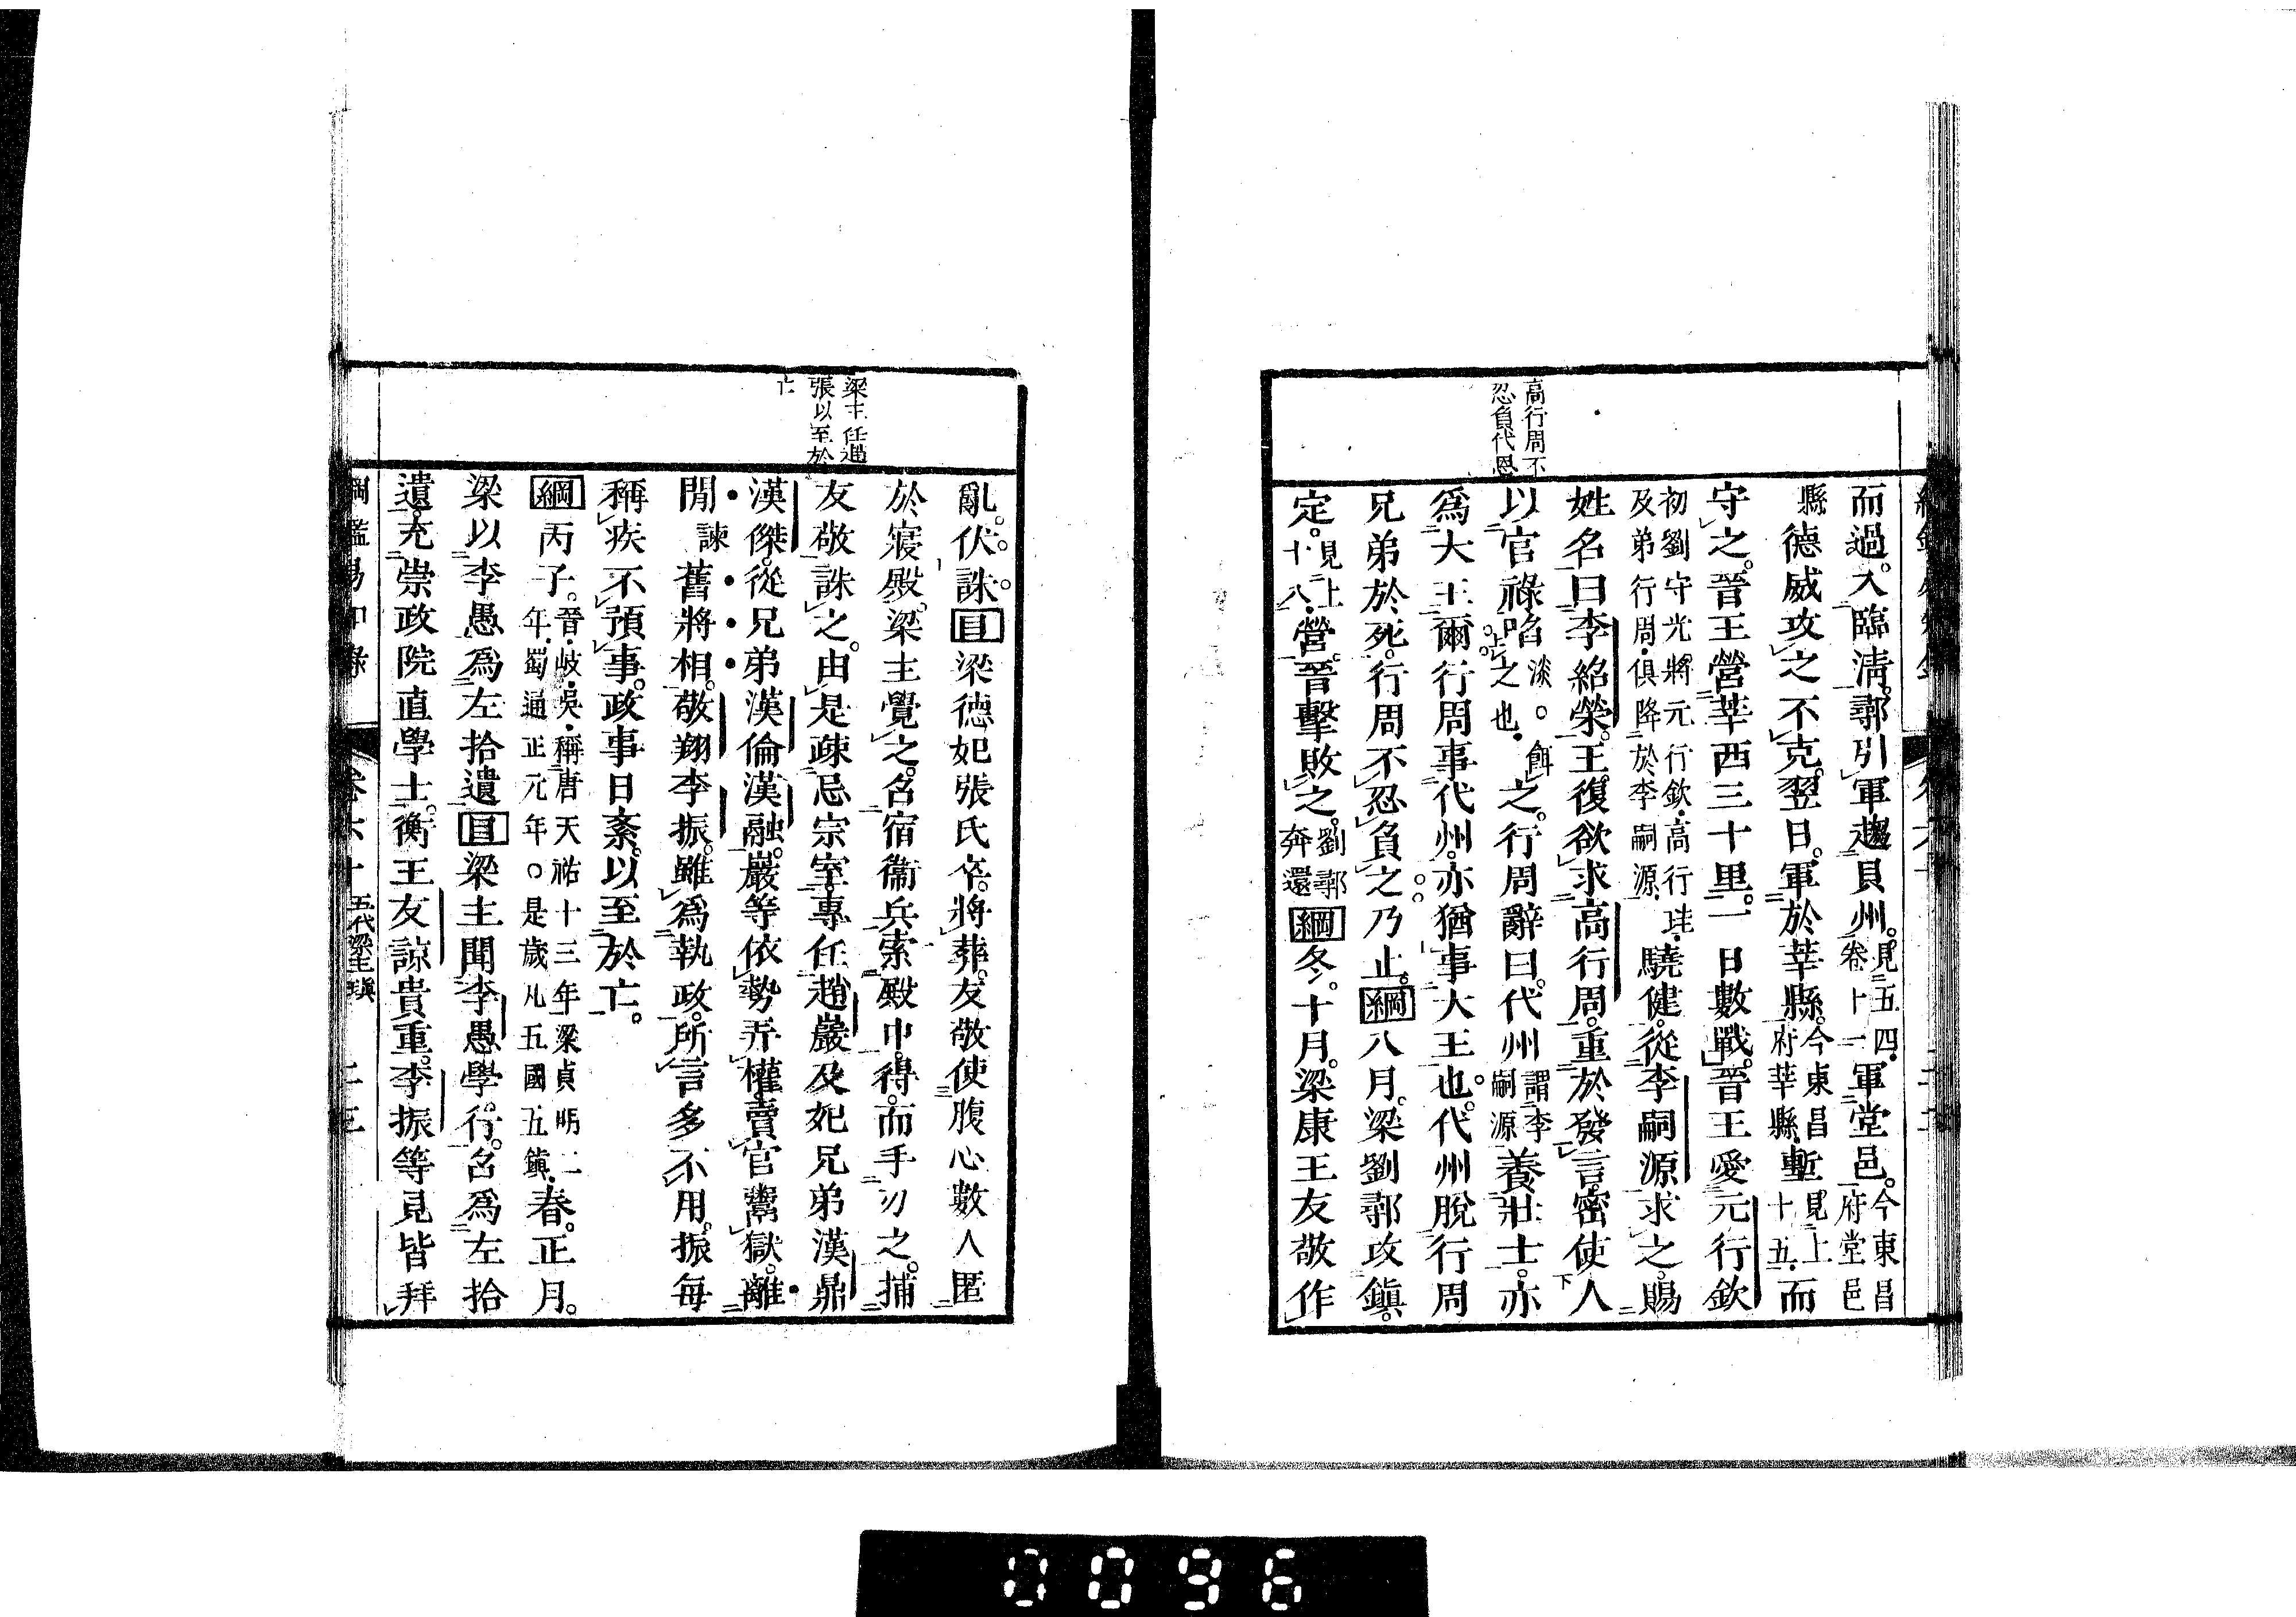 高行周不
忍負代恩
而過。入臨淸。鄩引軍趨貝州。見五四卷十一軍堂邑。今東昌府堂邑
縣德威攻之不克。翌日。軍於莘縣。今東昌府莘縣塹見上十五而
守之。晉王營莘西三十里。一日數戰。晉王愛元行欽
初劉守光將元行欽高行珪及弟行周俱降於李嗣源驍健。從李嗣源求之。賜
姓名曰李紹榮。王復欲求高行周。重於發言。密使人
以官祿啗淡。上之也餌之。行周辭曰。代州謂李嗣源養壯士。亦
爲大王爾行周事代州。亦猶事大王也。代州脫行周
兄弟於死。行周不忍負之乃止。綱八月。梁劉鄩攻鎭
定。見上十八營。晉擊敗之。劉鄩奔還綱冬。十月。梁康王友敬作
梁主任趙
張以至於
亡
亂。伏誅。目梁德妃張氏卒。將葬。友敬使腹心數人匿
於寢殿。梁主覺之。召宿衞兵索殿中。得。而手刃之。捕
友敬誅之。由是疎忌宗室。專任趙巖及妃兄弟漢鼎
漢傑。從兄弟漢倫漢融。巖等依勢弄權。賣官鬻獄。離
閒諫舊將相。敬翔李振。雖爲執政。所言多不用。振每
稱疾不預事。政事日紊。以至於亡。
綱丙子。晉岐吳稱唐天祐十三年梁貞明二年蜀通正元年。是歲凡五國五鎭春。正月。
梁以李愚爲左拾遺目梁主聞李愚學行。召爲左拾
遺。充崇政院直學士。衡王友諒貴重。李振等見皆拜
綱鑑易知錄 卷六十 五代梁主瑱 二三